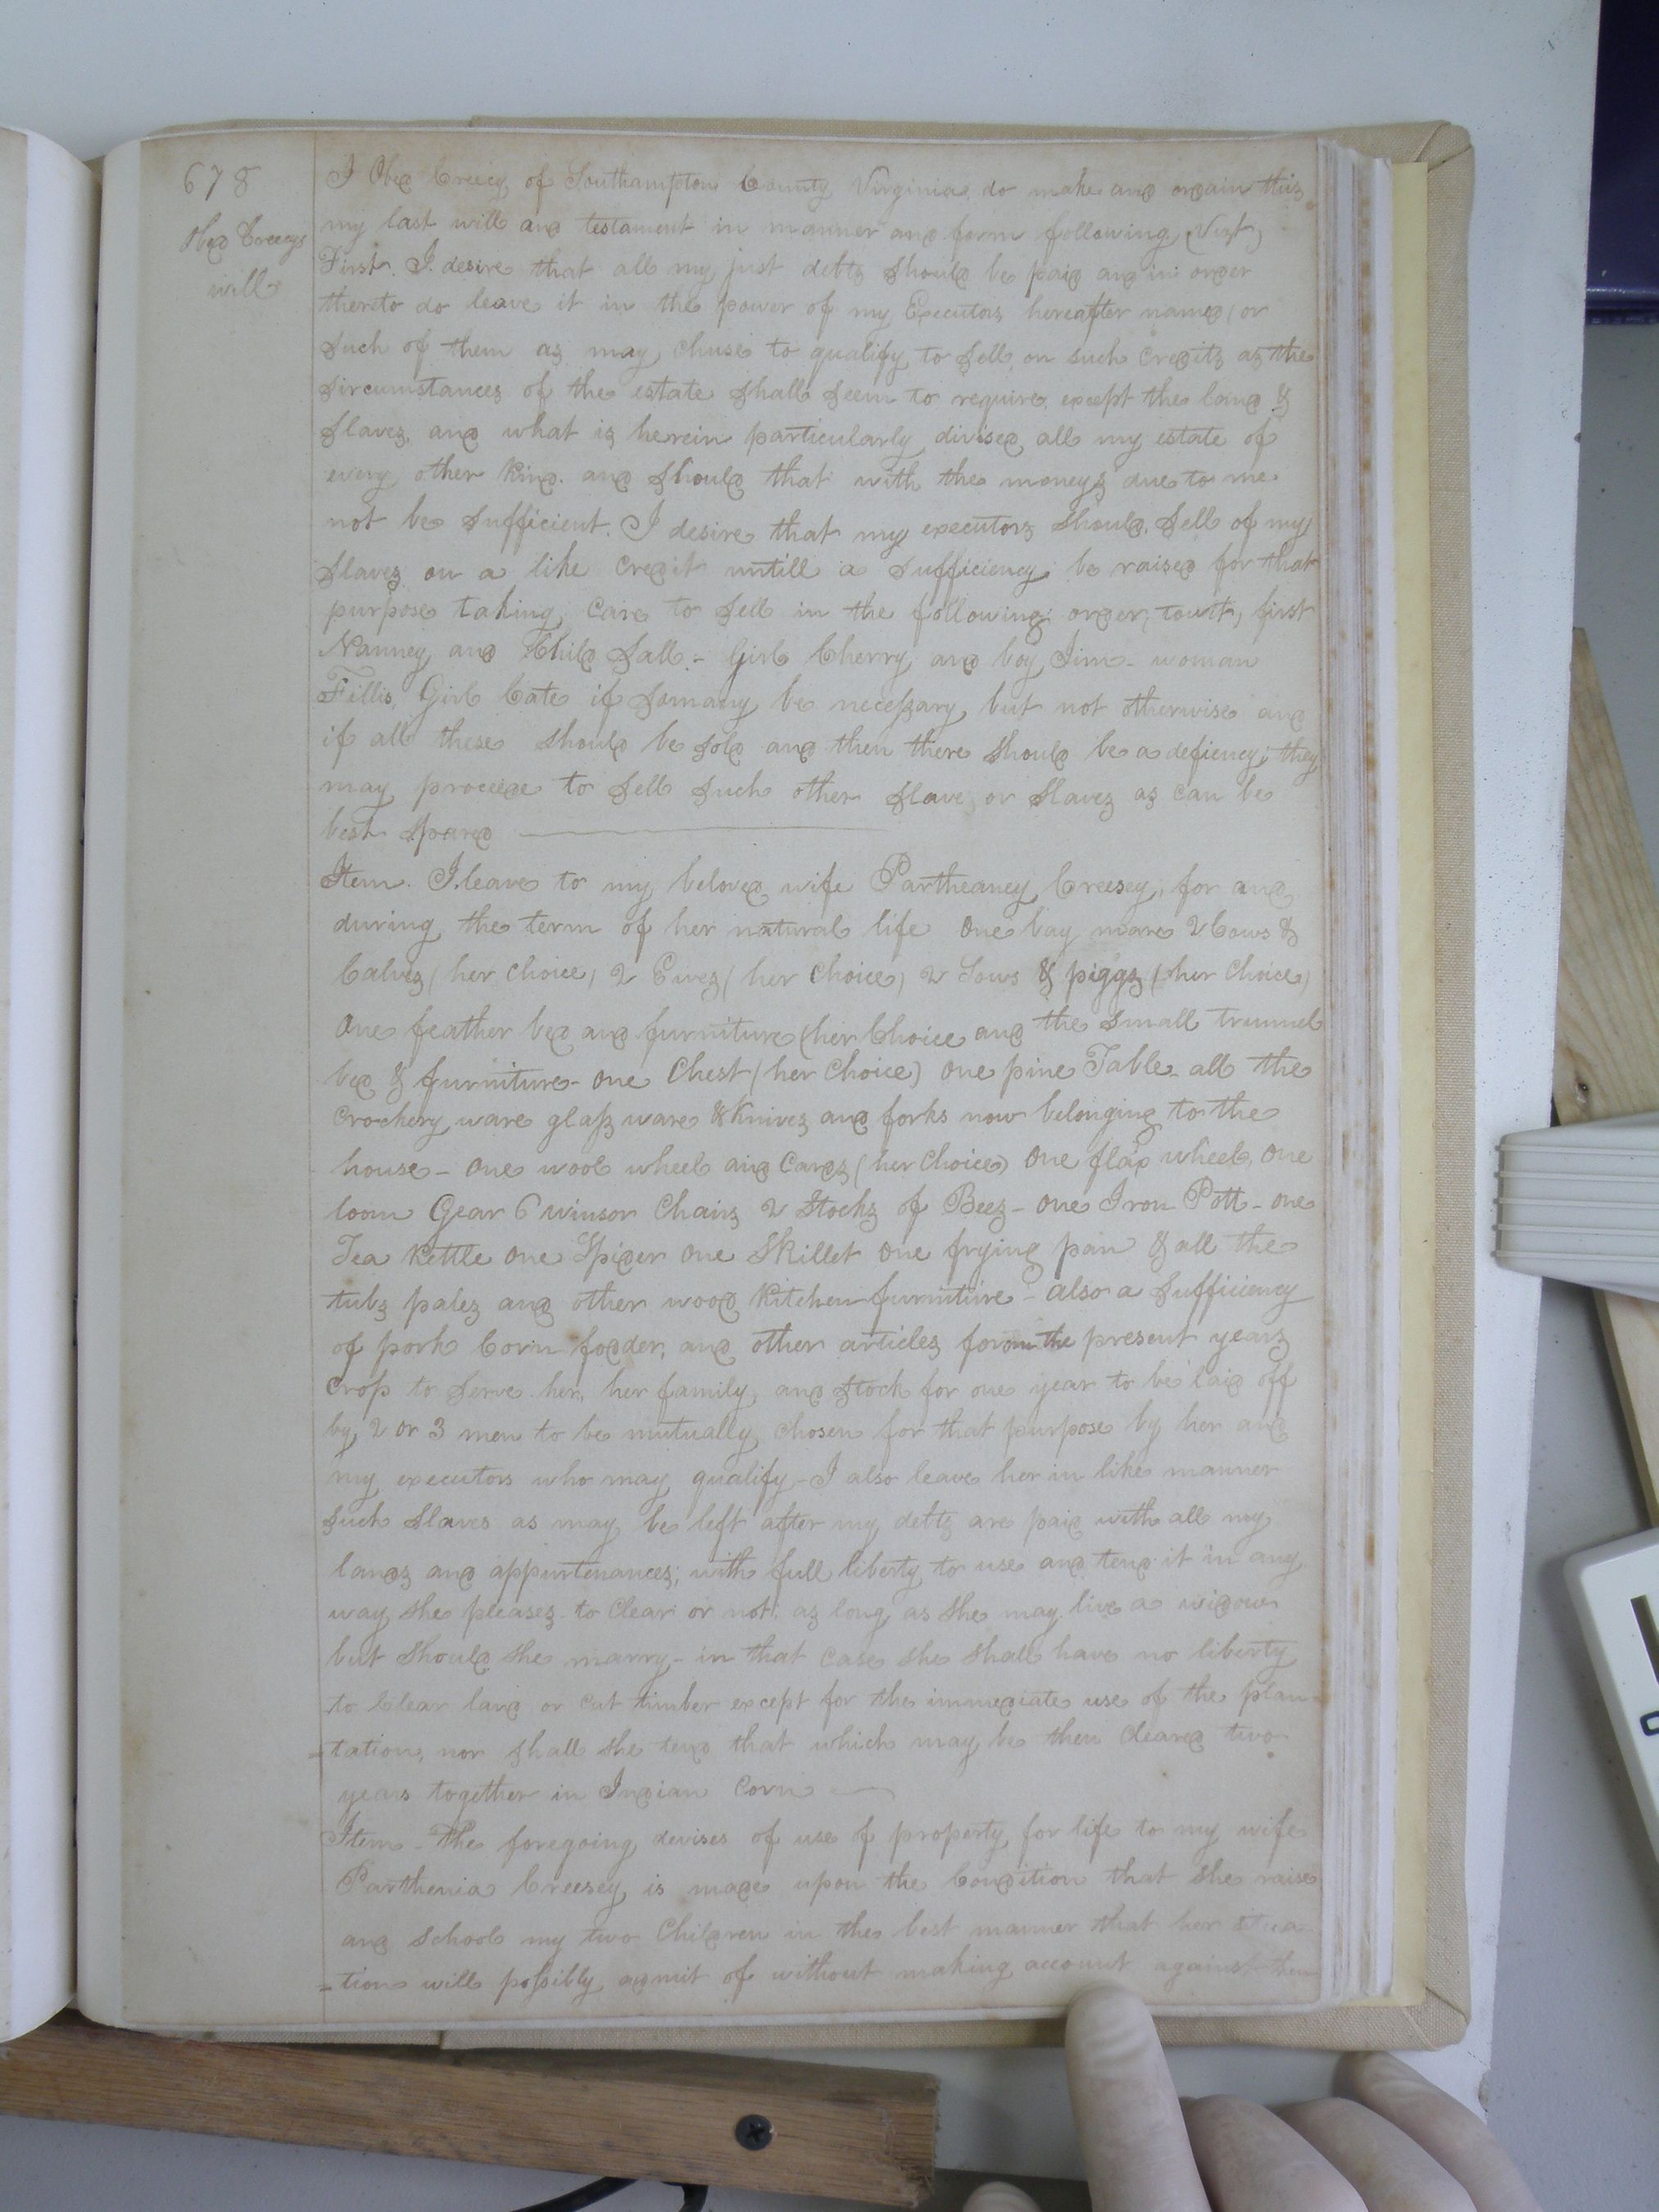 678
Obed Creecys
will
I Obed Creecy of Southampton County Virginia do make and ordain this
my last will and testament in manner and form following, (Vizt)
First. I desire that all my just debts should be paid and in order
thereto do leave it in the power of my Executors hereafter named (or
such of them as may chuse to qualify, to sell, on such credits as the
circumstances of the estate shall seem to require. except the land &
slaves, and what is herein particularly divised all my estate of
every other kind. and should that with the moneys due to me
not be sufficient. I desire that my executors should sell of my
slaves on a like credit untill a sufficiency be raised for that
purpose taking care to sell in the following order, towit, first
Nanney and Child Sall - Girl Cherry and boy Jim - woman
Fillis, Girl Cate if somany be necessary but not otherwise and
if all these should be sold and then there should be a deficency; they
may proceede to sell such other slave, or slaves as can be
best spared
Item. I leave to my beloved wife Partheaney Creesey, for and
during the term of her natural life One bay mare 2 Cows &
Calves (her choice) 2 Ewes (her choice) 2 Sows & piggs (her choice)
One feather bed and furniture (her Choice and the small trunnel
bed & furniture - one Chest (her Choice) one pine Table - all the
Crockery ware glass ware & knives and forks now belonging to the
house - One wool wheel and Cards (her Choice) One flax wheel, One
loom Gear 6 winsor Chairs 2 Stocks of Bees - One Iron Pott - one
Tea Kettle One Spider One Skillet One frying pan & all the
tubs pales and other wood kitchen furniture - also a sufficiency
of pork Corn fodder, and other articles from the present years
crop to serve her, her family, and stock for one year to be laid off
by 2 or 3 men to be mutually chosen for that purpose by her and
my executors who may qualify - I also leave her in like manner
such slaves as may be left after my debts are paid with all my
lands and appurtenances; with full liberty to use and tend it in any
way she pleases to clear or not, as long as she may live a widow
but should she marry - in that case she shall have no liberty
to Clear land or cut timber except for the immediate use of the plan=
=tation, nor shall she tend that which may be then cleared two
years together in Indian Corn
Item - The foregoing devises of use of property for life to my wife
Parthenia Creesey is made upon the Condition that she raise
and school my two Children in the best manner that her situa=
=tion will possibly admit of without making account against them